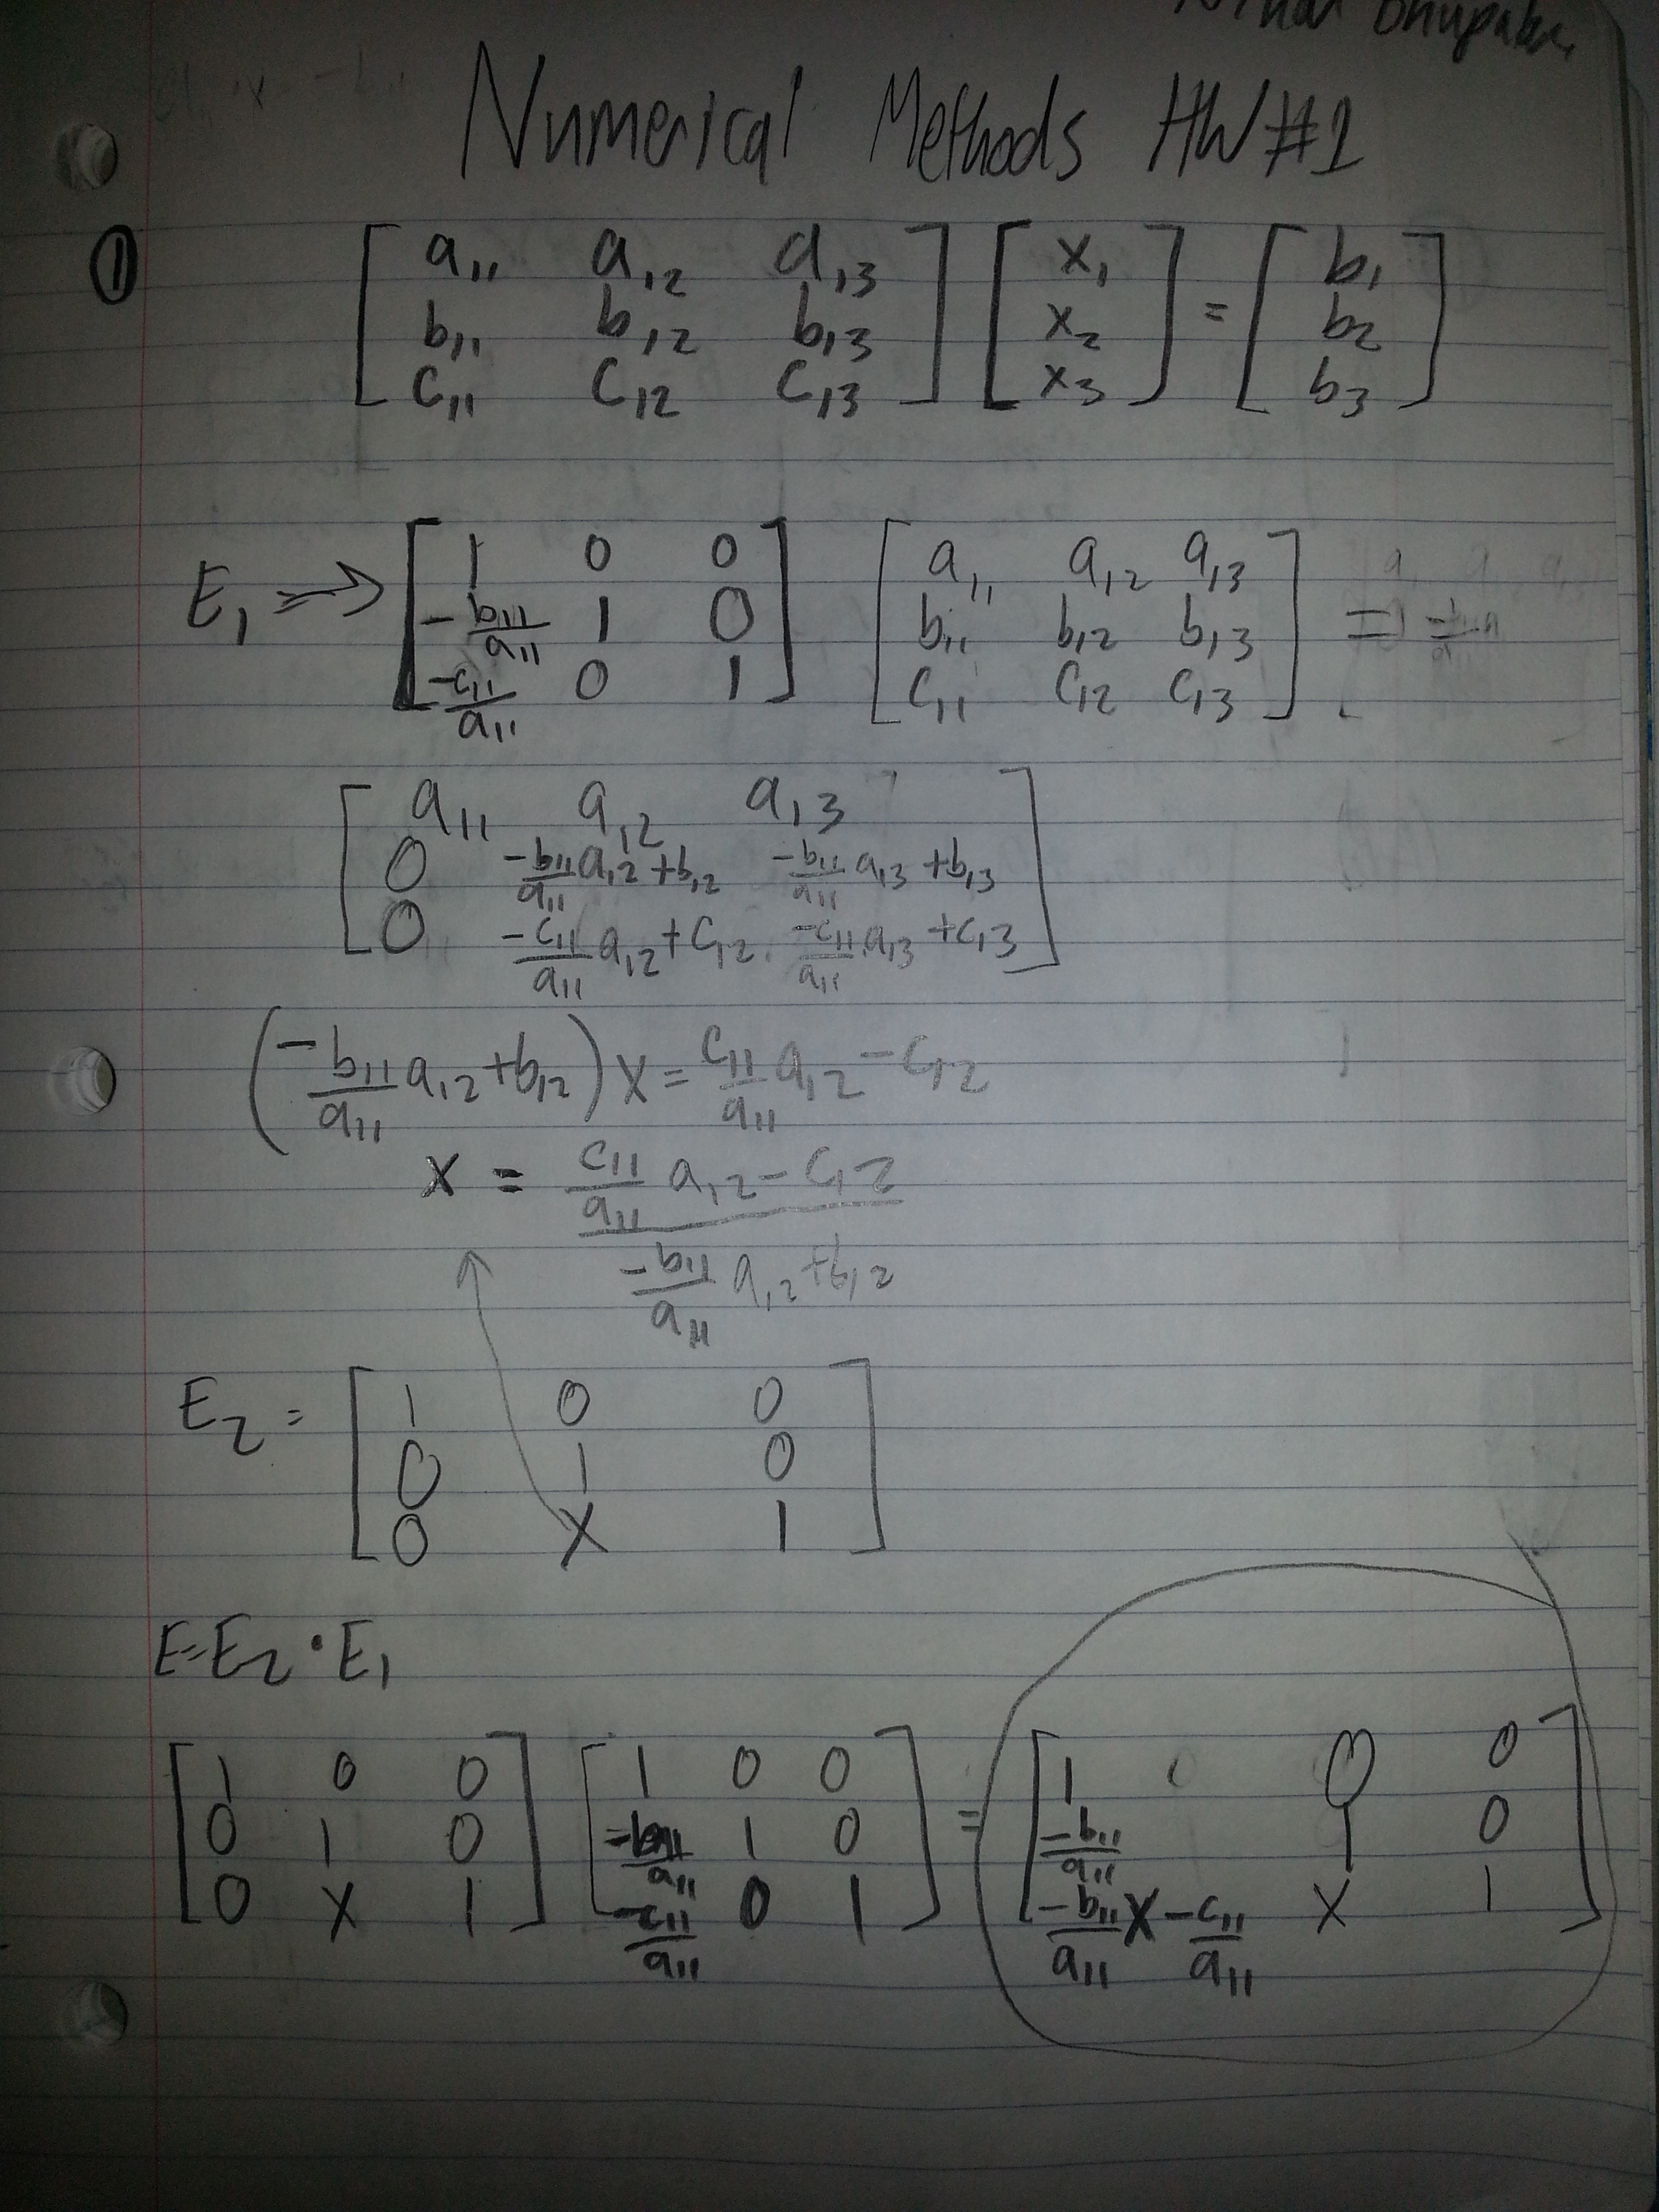 Numerical Methods HW#1
①
[ a₁₁ a₁₂ a₁₃ ] [ x₁ ] = [ b₁ ]
[ b₁₁ b₁₂ b₁₃ ] [ x₂ ] [ b₂ ]
[ c₁₁ c₁₂ c₁₃ ] [ x₃ ] [ b₃ ]
E₁ ⇒ [ 1 0 0 ] [ a₁₁ a₁₂ a₁₃ ] =
[ -b₁₁/a₁₁ 1 0 ] [ b₁₁ b₁₂ b₁₃ ]
[ -c₁₁/a₁₁ 0 1 ] [ c₁₁ c₁₂ c₁₃ ]
[ a₁₁ a₁₂ a₁₃ ]
[ 0 -b₁₁/a₁₁ a₁₂+b₁₂ -b₁₁/a₁₁ a₁₃+b₁₃ ]
[ 0 -c₁₁/a₁₁ a₁₂+c₁₂ -c₁₁/a₁₁ a₁₃+c₁₃ ]
(-b₁₁/a₁₁ a₁₂+b₁₂) x = c₁₁/a₁₁ a₁₂ - c₁₂
x = (c₁₁/a₁₁ a₁₂ - c₁₂) / (-b₁₁/a₁₁ a₁₂+b₁₂)
E₂ = [ 1 0 0 ]
[ 0 1 0 ]
[ 0 x 1 ]
E=E₂ • E₁
[ 1 0 0 ] [ 1 0 0 ] = [ 1 0 0 ]
[ 0 1 0 ] [ -b₁₁/a₁₁ 1 0 ] [ -b₁₁/a₁₁ 1 0 ]
[ 0 x 1 ] [ -c₁₁/a₁₁ 0 1 ] [ -b₁₁/a₁₁ x - c₁₁/a₁₁ x 1 ]